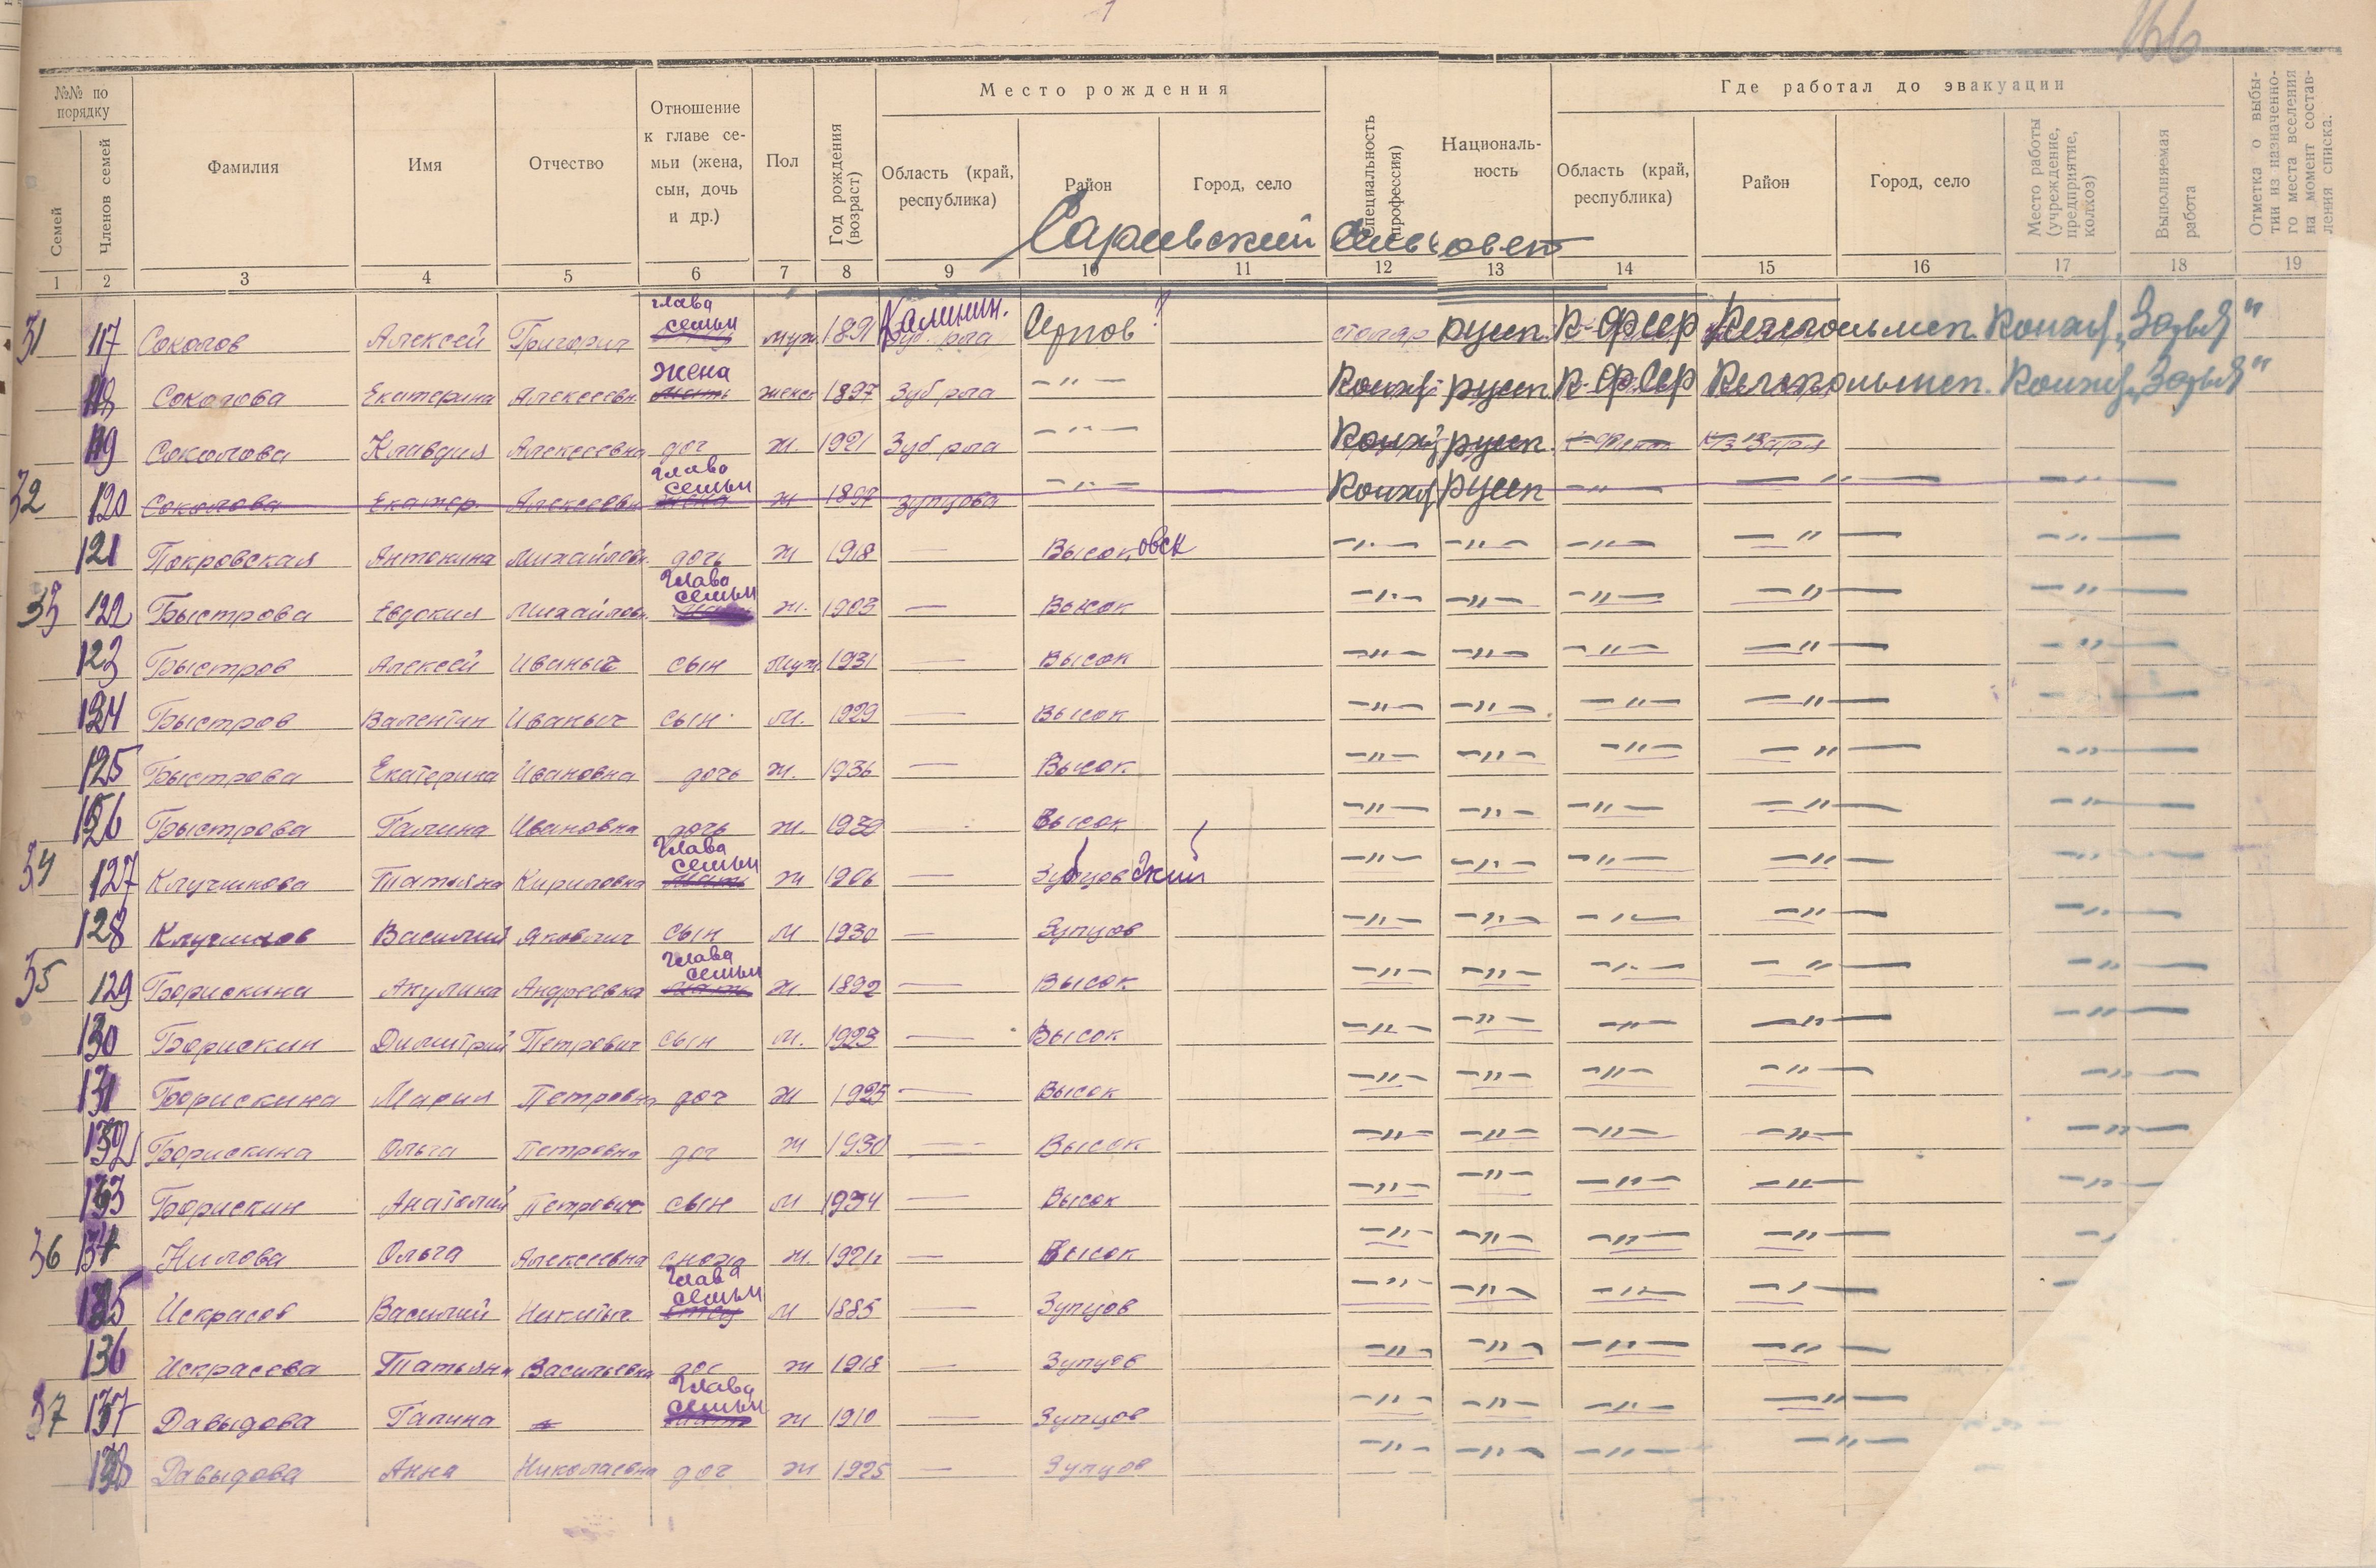 166
№№ по порядку
Семей
Членов семей
Фамилия
Имя
Отчество
Отношение к главе се-
мьи (жена, сын, дочь и др.)
Пол
Год рождения (возраст)
Место рождения
Область (край, республика)
Район
Город, село
Специальность (профессия)
Националь-
ность
Где работал до эвакуации
Область (край, республика)
Район
Город, село
Место работы (учреждение, предприятие, колхоз)
Выполняемая работа
Отметка о выбы-
тии из назначенно-
го места вселения
на момент состав-
ления списка.
Сариевский сельсовет
1 2 3 4 5 6 7 8 9 10 11 12 13 14 15 16 17 18 19
31 117 Соколов Алексей Григорич глава семьи муж. 1891 Калинин. столяр русск. К-ФССР
118 Соколова Екатерина Алексеевн. жена женск 1897 Зуб р-ла - " - русск. К-ФССР
119 Соколова Клавдия Алексеевна доч ж. 1921 Зуб р-ла - " - русск.
32 120 Соколова Екатер. Алексеевн глава семьи ж 1897 зупцова - " - русск - " - - " - - " -
121 Покровская Антонина Михайловн. дочь ж 1918 — Высоковск - " - - " - - " - - " - - " -
33 122 Быстрова Евдокия Михайловн. глава семьи ж. 1903 — Высок - " - - " - - " - - " - - " -
123 Быстров Алексей Иваныч сын муж. 1931 — Высок - " - - " - - " - - " - - " -
124 Быстров Валентин Иваныч сын м. 1929 — Высок - " - - " - - " - - " - - " -
125 Быстрова Екатерина Ивановна дочь ж. 1936 — Высок - " - - " - - " - - " - - " -
126 Быстрова Галина Ивановна дочь ж. 1939 — Высок - " - - " - - " - - " - - " -
34 127 Клучинова Татьяна Кириловна глава семьи ж 1906 — Зубцовский - " - - " - - " - - " - - " -
128 Клучинов Василий Яковлич сын м 1930 — Зупцов - " - - " - - " - - " - - " -
35 129 Борискина Акулина Андреевна глава семьи ж 1892 — Высок - " - - " - - " - - " - - " -
130 Борискин Димитрий Петрович сын м. 1923 — Высок - " - - " - - " - - " - - " -
131 Борискина Мария Петровна доч ж 1925 — Высок - " - - " - - " - - " - - " -
132 Борискина Ольга Петровна доч ж 1930 — Высок - " - - " - - " - - " - - " -
133 Борискин Анатолий Петрович сын м 1934 — Высок - " - - " - - " - - " - - " -
36 134 Нилова Ольга Алексеевна сноха ж. 1921 — Высок - " - - " - - " - - " -
135 Искрасов Василий Никитич глава семьи м 1885 — Зупцов - " - - " - - " - - " -
136 Искрасова Татьяна Васильевна доч ж 1918 — Зупцов - " - - " - - " - - " -
37 137 Давыдова Галина глава семьи ж 1910 — Зупцов - " - - " - - " - - " -
138 Давыдова Анна Николаевна доч ж 1925 — Зупцов - " - - " - - " - - " -